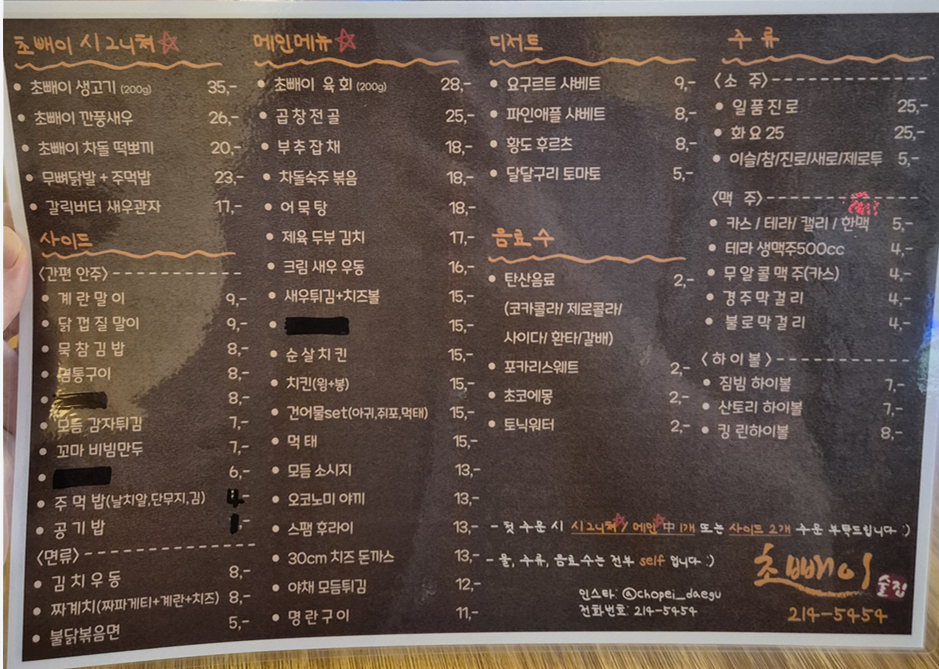 초빼이 시그니쳐
초빼이 생고기 (200g) 35,-
초빼이 깐풍새우 26,-
초빼이 차돌 떡뽀끼 20,-
무뼈닭발 + 주먹밥 23,-
갈릭버터 새우관자 17,-
사이드
<간편 안주>
계란말이 9,-
닭껍질말이 9,-
묵참김밥 8,-
염통구이 8,-
8,-
모듬 감자튀김 7,-
꼬마 비빔만두 7,-
6,-
주먹밥(날치알,단무지,김)
공기밥
<면류>
김치우동 8,-
짜계치(짜파게티+계란+치즈) 8,-
불닭볶음면 5,-
메인메뉴
초빼이 육회 (200g) 28,-
곱창전골 25,-
부추잡채 18,-
차돌숙주 볶음 18,-
어묵탕 18,-
제육 두부 김치 17,-
크림 새우 우동 16,-
새우튀김+치즈볼 15,-
15,-
순살치킨 15,-
치킨(윙+봉) 15,-
건어물set(아귀,쥐포,먹태) 15,-
먹태 15,-
모듬 소시지 13,-
오코노미 야끼 13,-
스팸 후라이 13,-
30cm 치즈 돈까스 13,-
야채 모듬튀김 12,-
명란구이 11,-
디저트
요구르트 샤베트 9,-
파인애플 샤베트 8,-
황도 후르츠 8,-
달달구리 토마토 5,-
음료수
탄산음료 2,-
(코카콜라/ 제로콜라/
사이다/ 환타/갈배)
포카리스웨트 2,-
초코에몽 2,-
토닉워터 2,-
주류
<소주>
일품진로 25,-
화요 25 25,-
이슬/참/진로/새로/제로투 5,-
<맥주>
카스 / 테라/ 캘리 / 한맥 5,-
테라 생맥주500cc 4,-
무알콜맥주(카스) 4,-
경주막걸리 4,-
불로막걸리 4,-
<하이볼>
짐빔 하이볼 7,-
산토리 하이볼 7,-
킹 린하이볼 8,-
- 첫 주문 시 시그니쳐 / 메인 中 1개 또는 사이드 2개 주문 부탁드립니다 :)
- 물, 주류, 음료수는 전부 self 입니다 :)
인스타: @chopei_daegu
전화번호: 214-5454
초빼이 술집
214-5454